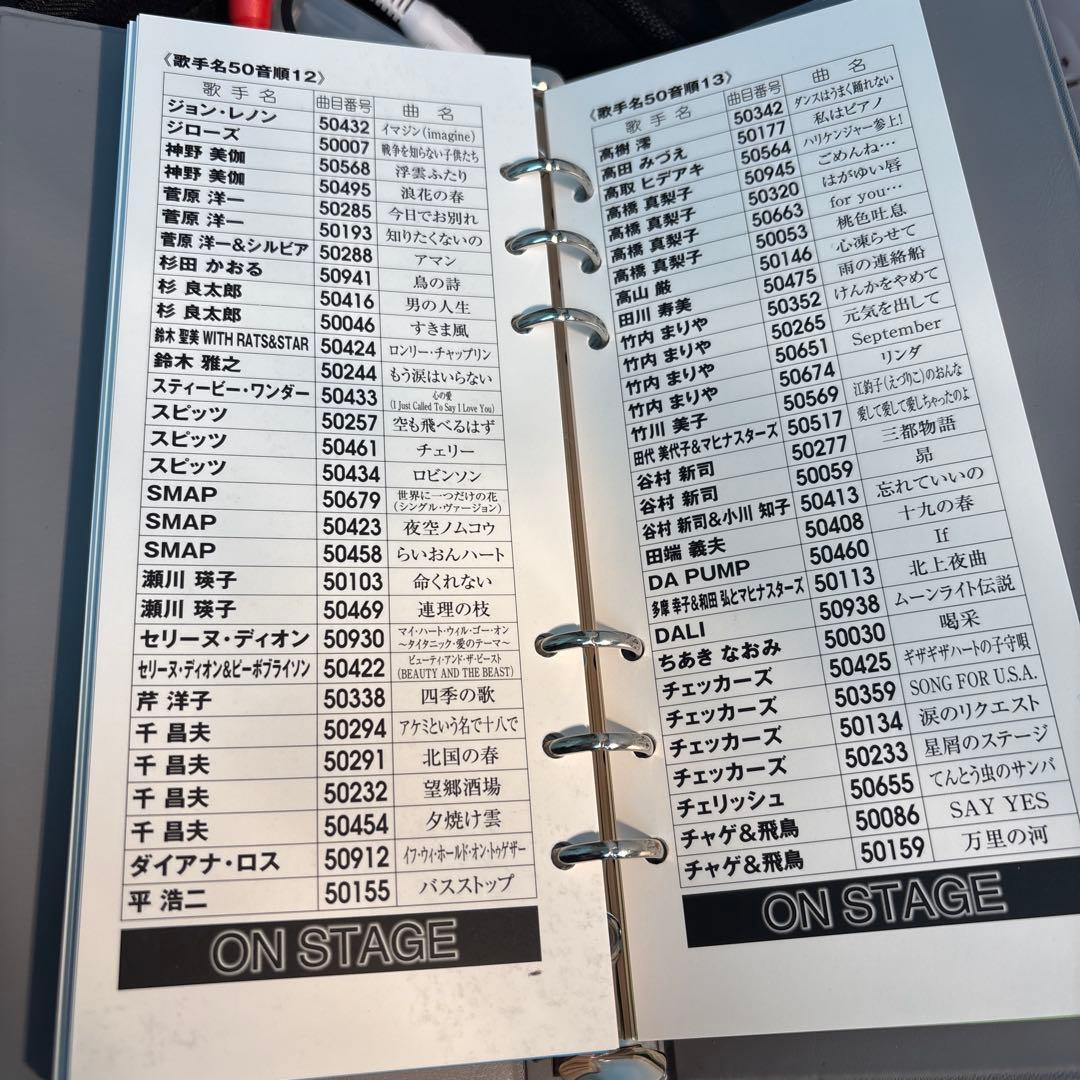 《歌手名50音順12》
歌手名 曲目番号 曲名
ジョン・レノン 50432 イマジン(imagine)
ジローズ 50007 戦争を知らない子供たち
神野 美伽 50568 浮雲ふたり
神野 美伽 50495 浪花の春
菅原 洋一 50285 今日でお別れ
菅原 洋一 50193 知りたくないの
菅原 洋一&シルビア 50288 アマン
杉田 かおる 50941 鳥の詩
杉 良太郎 50416 男の人生
杉 良太郎 50046 すきま風
鈴木 聖美 WITH RATS&STAR 50424 ロンリー・チャップリン
鈴木 雅之 50244 もう涙はいらない
スティービー・ワンダー 50433 心の愛
(I Just Called To Say I Love You)
スピッツ 50257 空も飛べるはず
スピッツ 50461 チェリー
スピッツ 50434 ロビンソン
SMAP 50679 世界に一つだけの花
(シングル・ヴァージョン)
SMAP 50423 夜空ノムコウ
SMAP 50458 らいおんハート
瀬川 瑛子 50103 命くれない
瀬川 瑛子 50469 連理の枝
セリーヌ・ディオン 50930 マイ・ハート・ウィル・ゴー・オン
～タイタニック・愛のテーマ～
セリーヌ・ディオン&ピーボブライソン 50422 ビューティ・アンド・ザ・ビースト
(BEAUTY AND THE BEAST)
芹 洋子 50338 四季の歌
千 昌夫 50294 アケミという名で十八で
千 昌夫 50291 北国の春
千 昌夫 50232 望郷酒場
千 昌夫 50454 夕焼け雲
ダイアナ・ロス 50912 イフ・ウィ・ホールド・オン・トゥゲザー
平 浩二 50155 バスストップ
ON STAGE
《歌手名50音順13》
歌手名 曲目番号 曲名
高樹 澪 50342 ダンスはうまく踊れない
高田 みづえ 50177 私はピアノ
高取 ヒデアキ 50564 ハリケンジャー参上!
高橋 真梨子 50945 ごめんね…
高橋 真梨子 50320 はがゆい唇
高橋 真梨子 50663 for you…
高橋 真梨子 50053 桃色吐息
高山 厳 50146 心凍らせて
田川 寿美 50475 雨の連絡船
竹内 まりや 50352 けんかをやめて
竹内 まりや 50265 元気を出して
竹内 まりや 50651 September
竹内 まりや 50674 リンダ
竹川 美子 50569 江釣子(えづりこ)のおんな
田代 美代子&マヒナスターズ 50517 愛して愛して愛しちゃったのよ
谷村 新司 50277 三都物語
谷村 新司 50059 昴
谷村 新司&小川 知子 50413 忘れていいの
田端 義夫 50408 十九の春
DA PUMP 50460 If
多摩 幸子&和田 弘とマヒナスターズ 50113 北上夜曲
DALI 50938 ムーンライト伝説
ちあき なおみ 50030 喝采
チェッカーズ 50425 ギザギザハートの子守唄
チェッカーズ 50359 SONG FOR U.S.A.
チェッカーズ 50134 涙のリクエスト
チェッカーズ 50233 星屑のステージ
チェリッシュ 50655 てんとう虫のサンバ
チャゲ&飛鳥 50086 SAY YES
チャゲ&飛鳥 50159 万里の河
ON STAGE